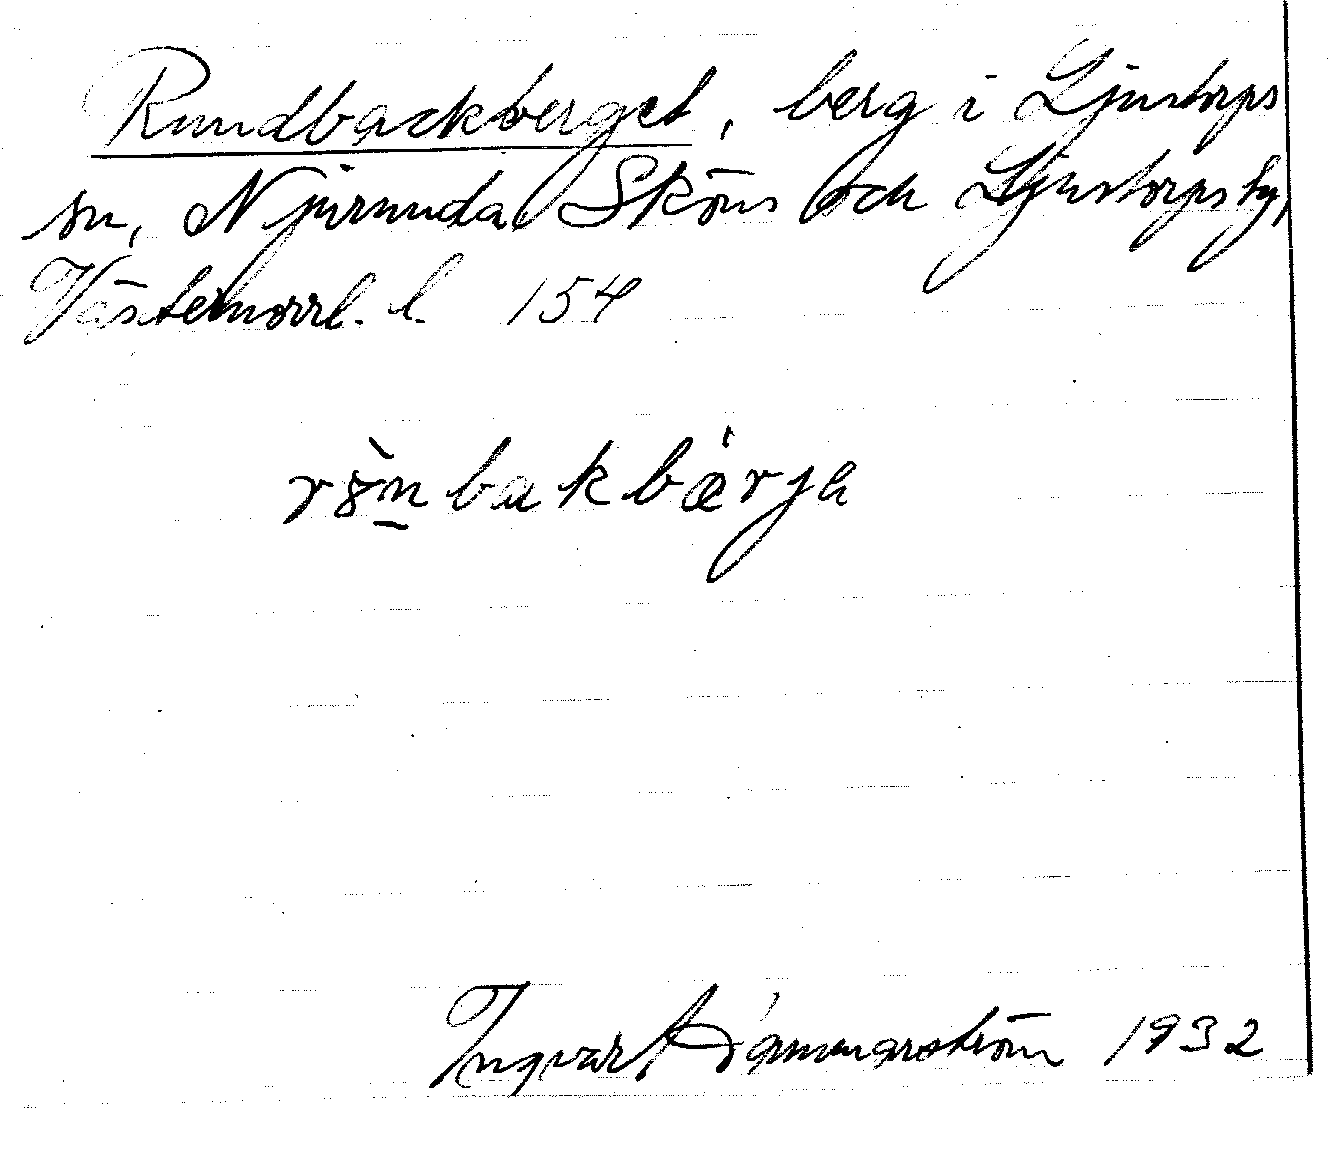 Rundbackberget, berg i Ljustorps
sn, Njurunda, Sköns och Ljustorps tg,
Västernorrl. l. 154
bakbærja
Ingvar 1932